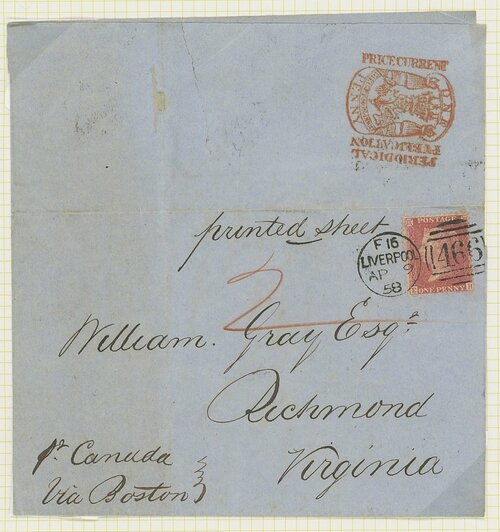 PRICE CURRENT
ONE PENNY
PERIODICAL
PUBLICATION
printed sheet
POSTAGE
ONE PENNY
F 16
LIVERPOOL
AP 9
58
466
2
William. Gray Esqr
Richmond
Virginia
pr Canada
Via Boston